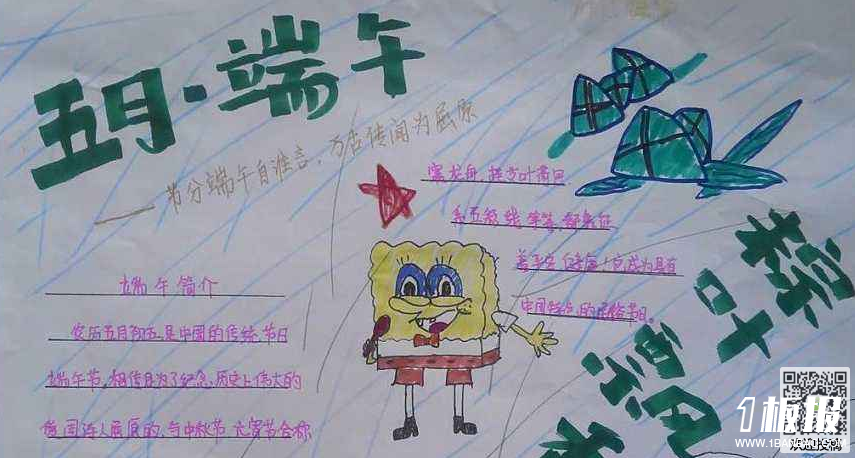 五月·端午
——节分端午自谁言，万古传闻为屈原
赛龙舟，挂艾叶菖
着平安
中国特色的民俗节日。
端午简介
农历五月初五是中国的传统节日
端午节，相传是为了纪念历史上伟大的
爱国诗人屈原的，与中秋节元宵节合称
粽叶
飘香
1板报
WWW.1BANBAO.COM
欢迎投稿